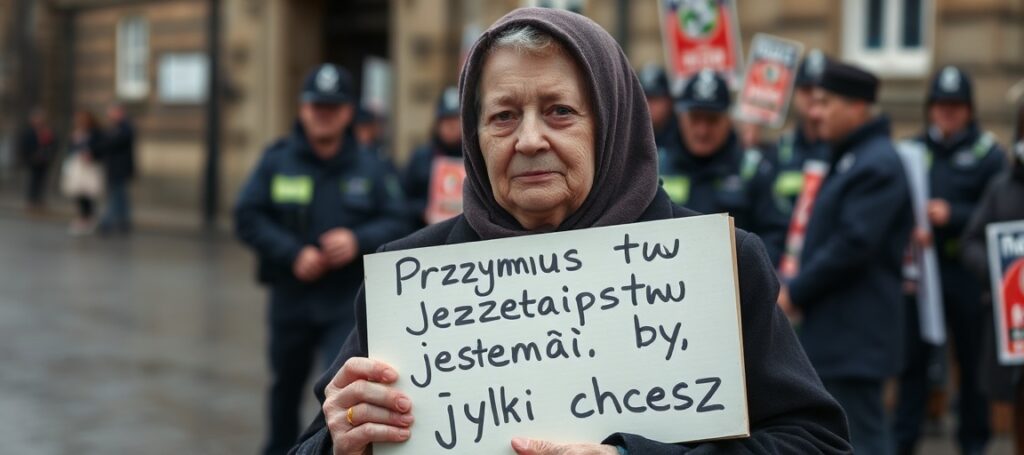 Przzymius tw
jezzetaipstw
jestemãi. by,
jylki chcesz